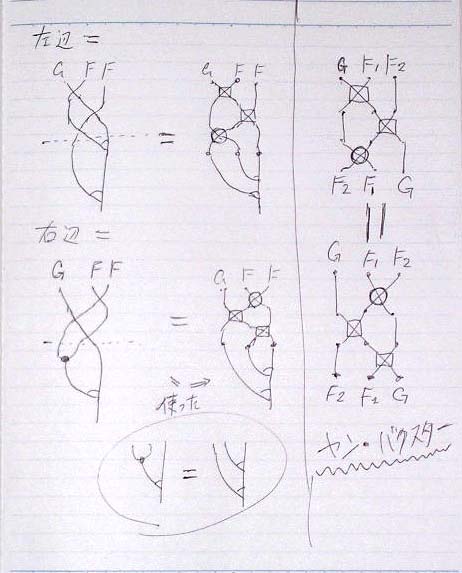 左辺 =
G F F
G F F
=
右辺 =
G F F
G F F
=
ここで
使った
=
G F₁ F₂
F₂ F₁ G
G F₁ F₂
F₂ F₁ G
ヤン・バクスター